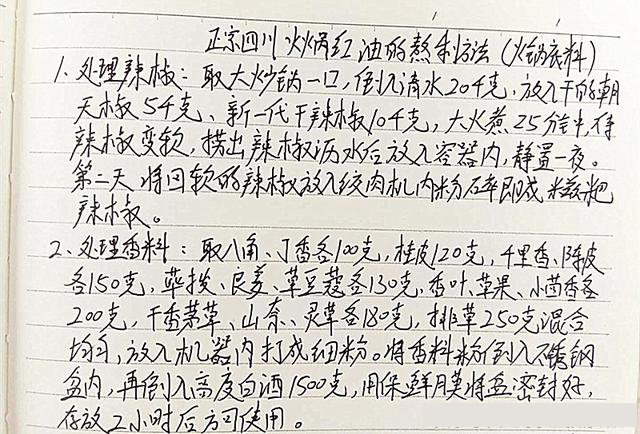 正宗四川火锅红油的熬制方法(火锅底料)
1、处理辣椒:取大炒锅一口,倒入清水20千克,放入干的朝
天椒5千克、新一代干辣椒10千克,大火煮25分钟,待
辣椒变软,捞出辣椒沥水后放入容器内,静置一夜。
第二天将回软的辣椒放入绞肉机内粉碎即成糍粑
辣椒。
2、处理香料:取八角、丁香各100克,桂皮120克,千里香、陈皮
各150克,荜拨、良姜、草豆蔻各130克,香叶、草果、小茴香各
200克,干香茅草、山奈、灵草各180克,排草250克混合
均匀,放入机器内打成细粉。将香料粉倒入不锈钢
盆内,再倒入高度白酒1500克,用保鲜膜将盆密封好,
存放2小时后方可使用。